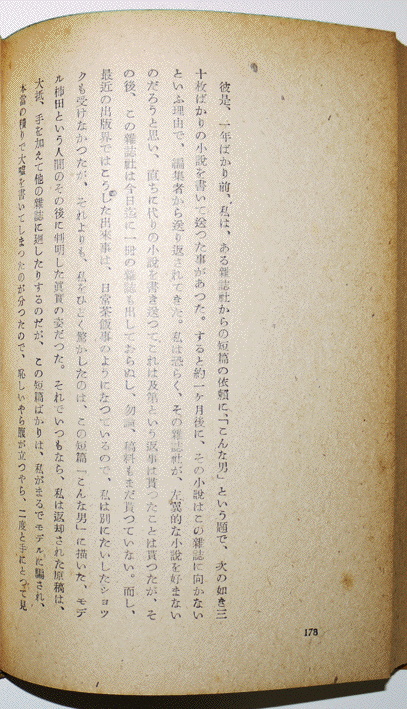 彼是、一年ばかり前、私は、ある雑誌社からの短篇の依頼に、「こんな男」という題で、次の如き三
十枚ばかりの小説を書いて送った事があつた。すると約一ヶ月後に、その小説はこの雑誌に向かない
といふ理由で、編集者から送り返されてきた。私は恐らく、その雑誌社が、左翼的な小説を好まない
のだろうと思い、直ちに代りの小説を書き送つてこれは及第という返事は貰つたことは貰つたが、そ
の後、この雑誌社は今日迄に一冊の雑誌も出しておらぬし、勿論、稿料もまだ貰つていない。而し、
最近の出版界ではこうした出来事は、日常茶飯事のようになつているので、私は別にたいしたショツ
クも受けなかつたが、それよりも、私をひどく驚かしたのは、この短篇「こんな男」に描いた、モデ
ル柿田という人間のその後に判明した真実の姿だつた。それでいつもなら、私は返却された原稿は、
大抵、手を加えて他の雑誌に廻したりするのだが、この短篇ばかりは、私がまるでモデルに騙され、
本当の積りで大嘘を書いてしまつたのが分つたので、恥しいやら腹が立つやら、二度と手にとつて見
178